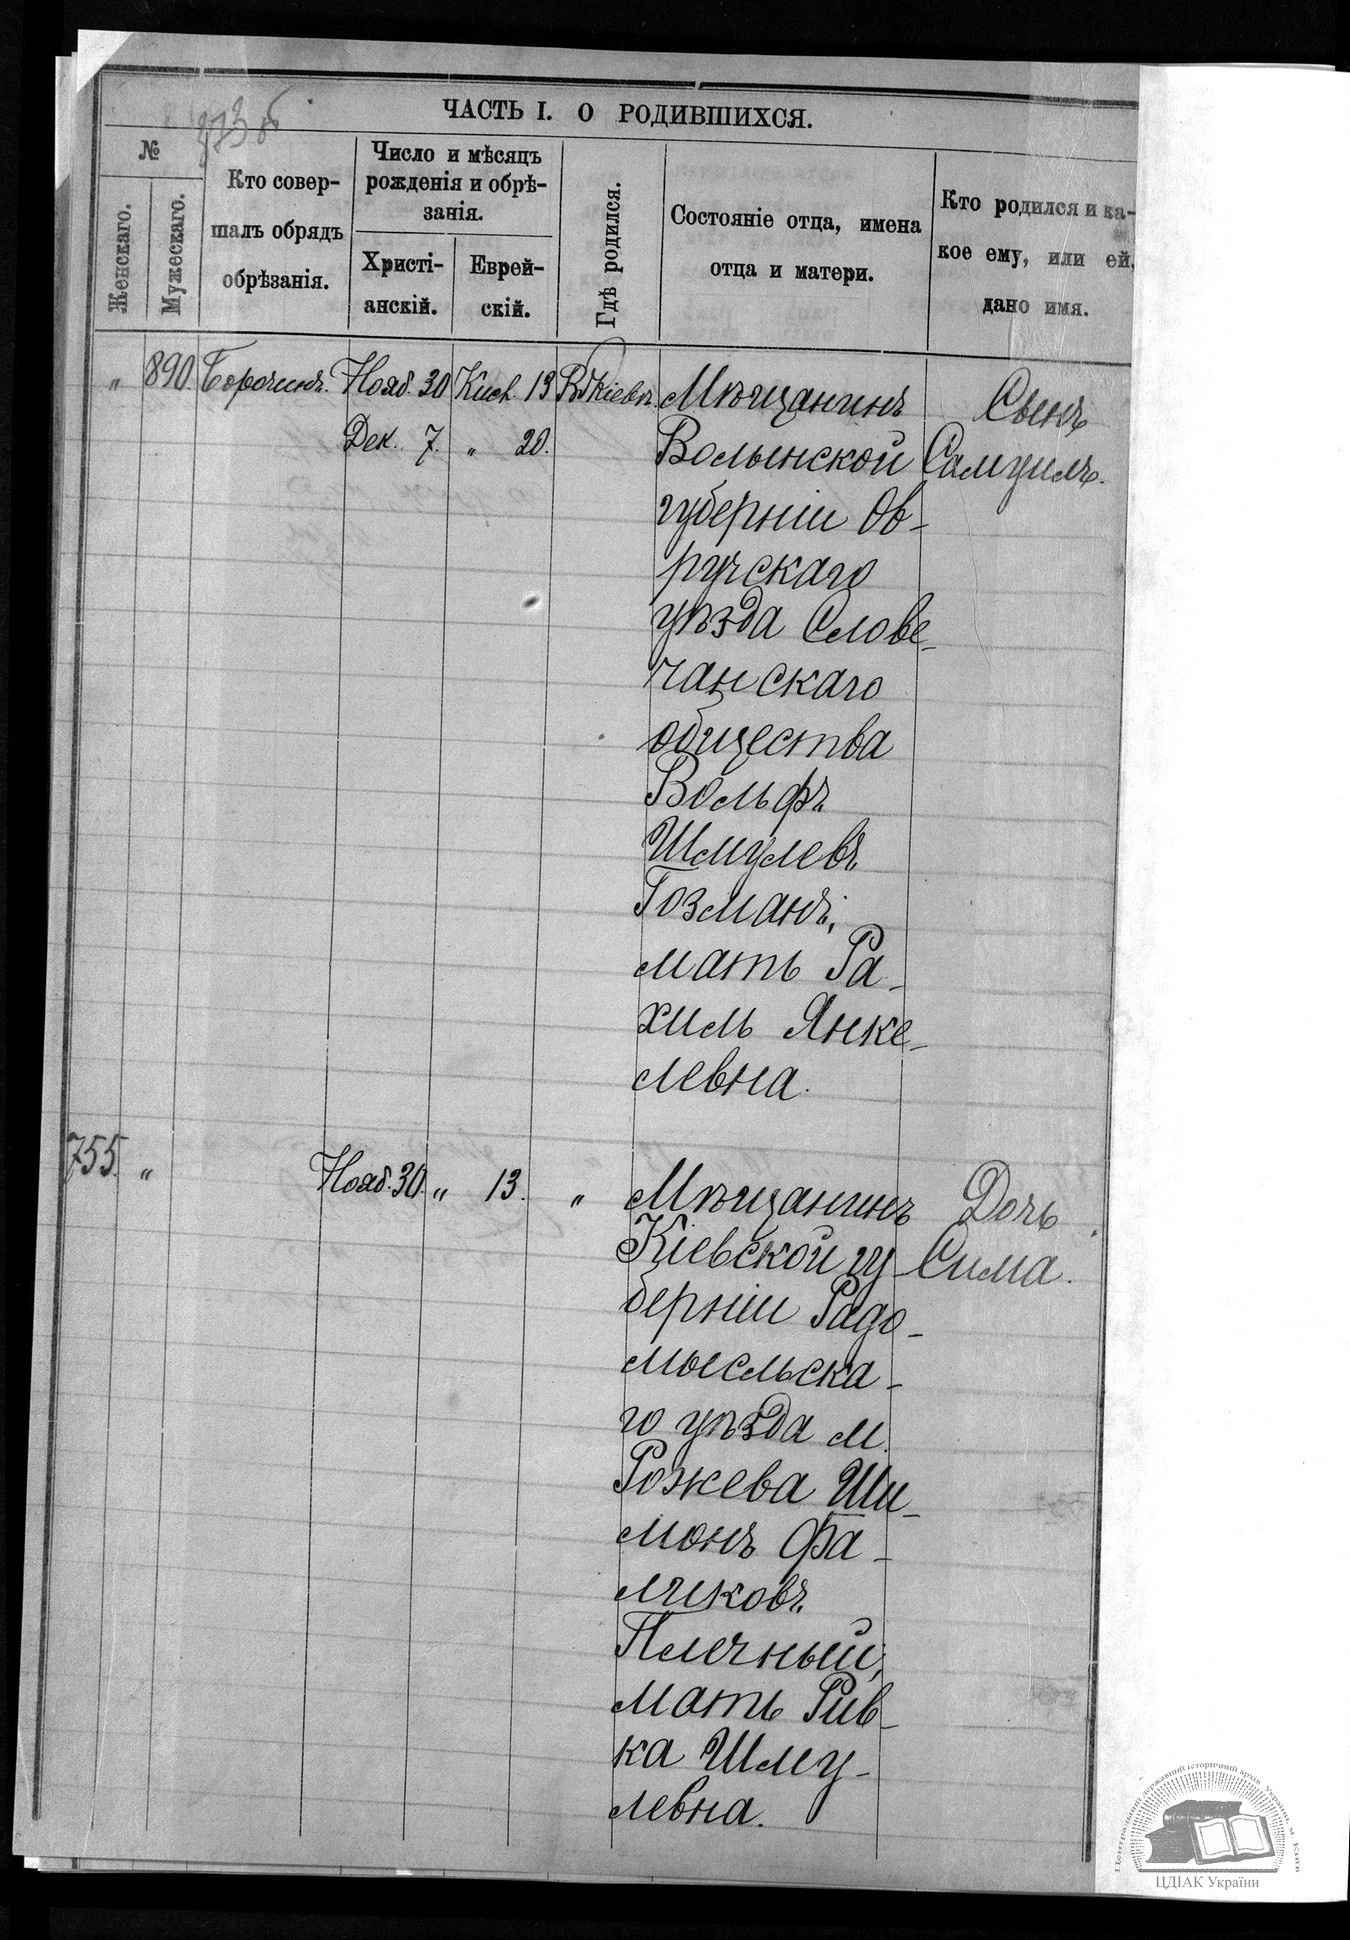 ЧАСТЬ I. О РОДИВШИХСЯ.
№
Женскаго.
Мужескаго.
Кто совер-
шалъ обрядъ
обрѣзанія.
Число и мѣсяцъ
рожденія и обрѣ-
занія.
Христі-
анскій.
Еврей-
скій.
Гдѣ родился.
Состояніе отца, имена
отца и матери.
Кто родился и ка-
кое ему, или ей,
дано имя.
" 890 Нояб. 30 Кисл. 13 Мѣщанинъ Сынъ
Дек. 7. " 20. Волынской Самуилъ.
губерніи Ов-
ручскаго
уѣзда Слове-
чанскаго
общества
Вольфъ
Шмулевъ
Гозманъ,
мать Ра-
хиль Янке-
левна.
755. " Нояб. 30. " 13. " Мѣщанинъ Дочь
Кіевской гу- Сима.
берніи Радо-
мысльска-
го уѣзда м.
Рожева Ши-
монъ Фа-
ликовъ
Плечный,
мать Рив-
ка Шму-
левна.
Центральний державний історичний архів України, м. Київ
ЦДІАК України